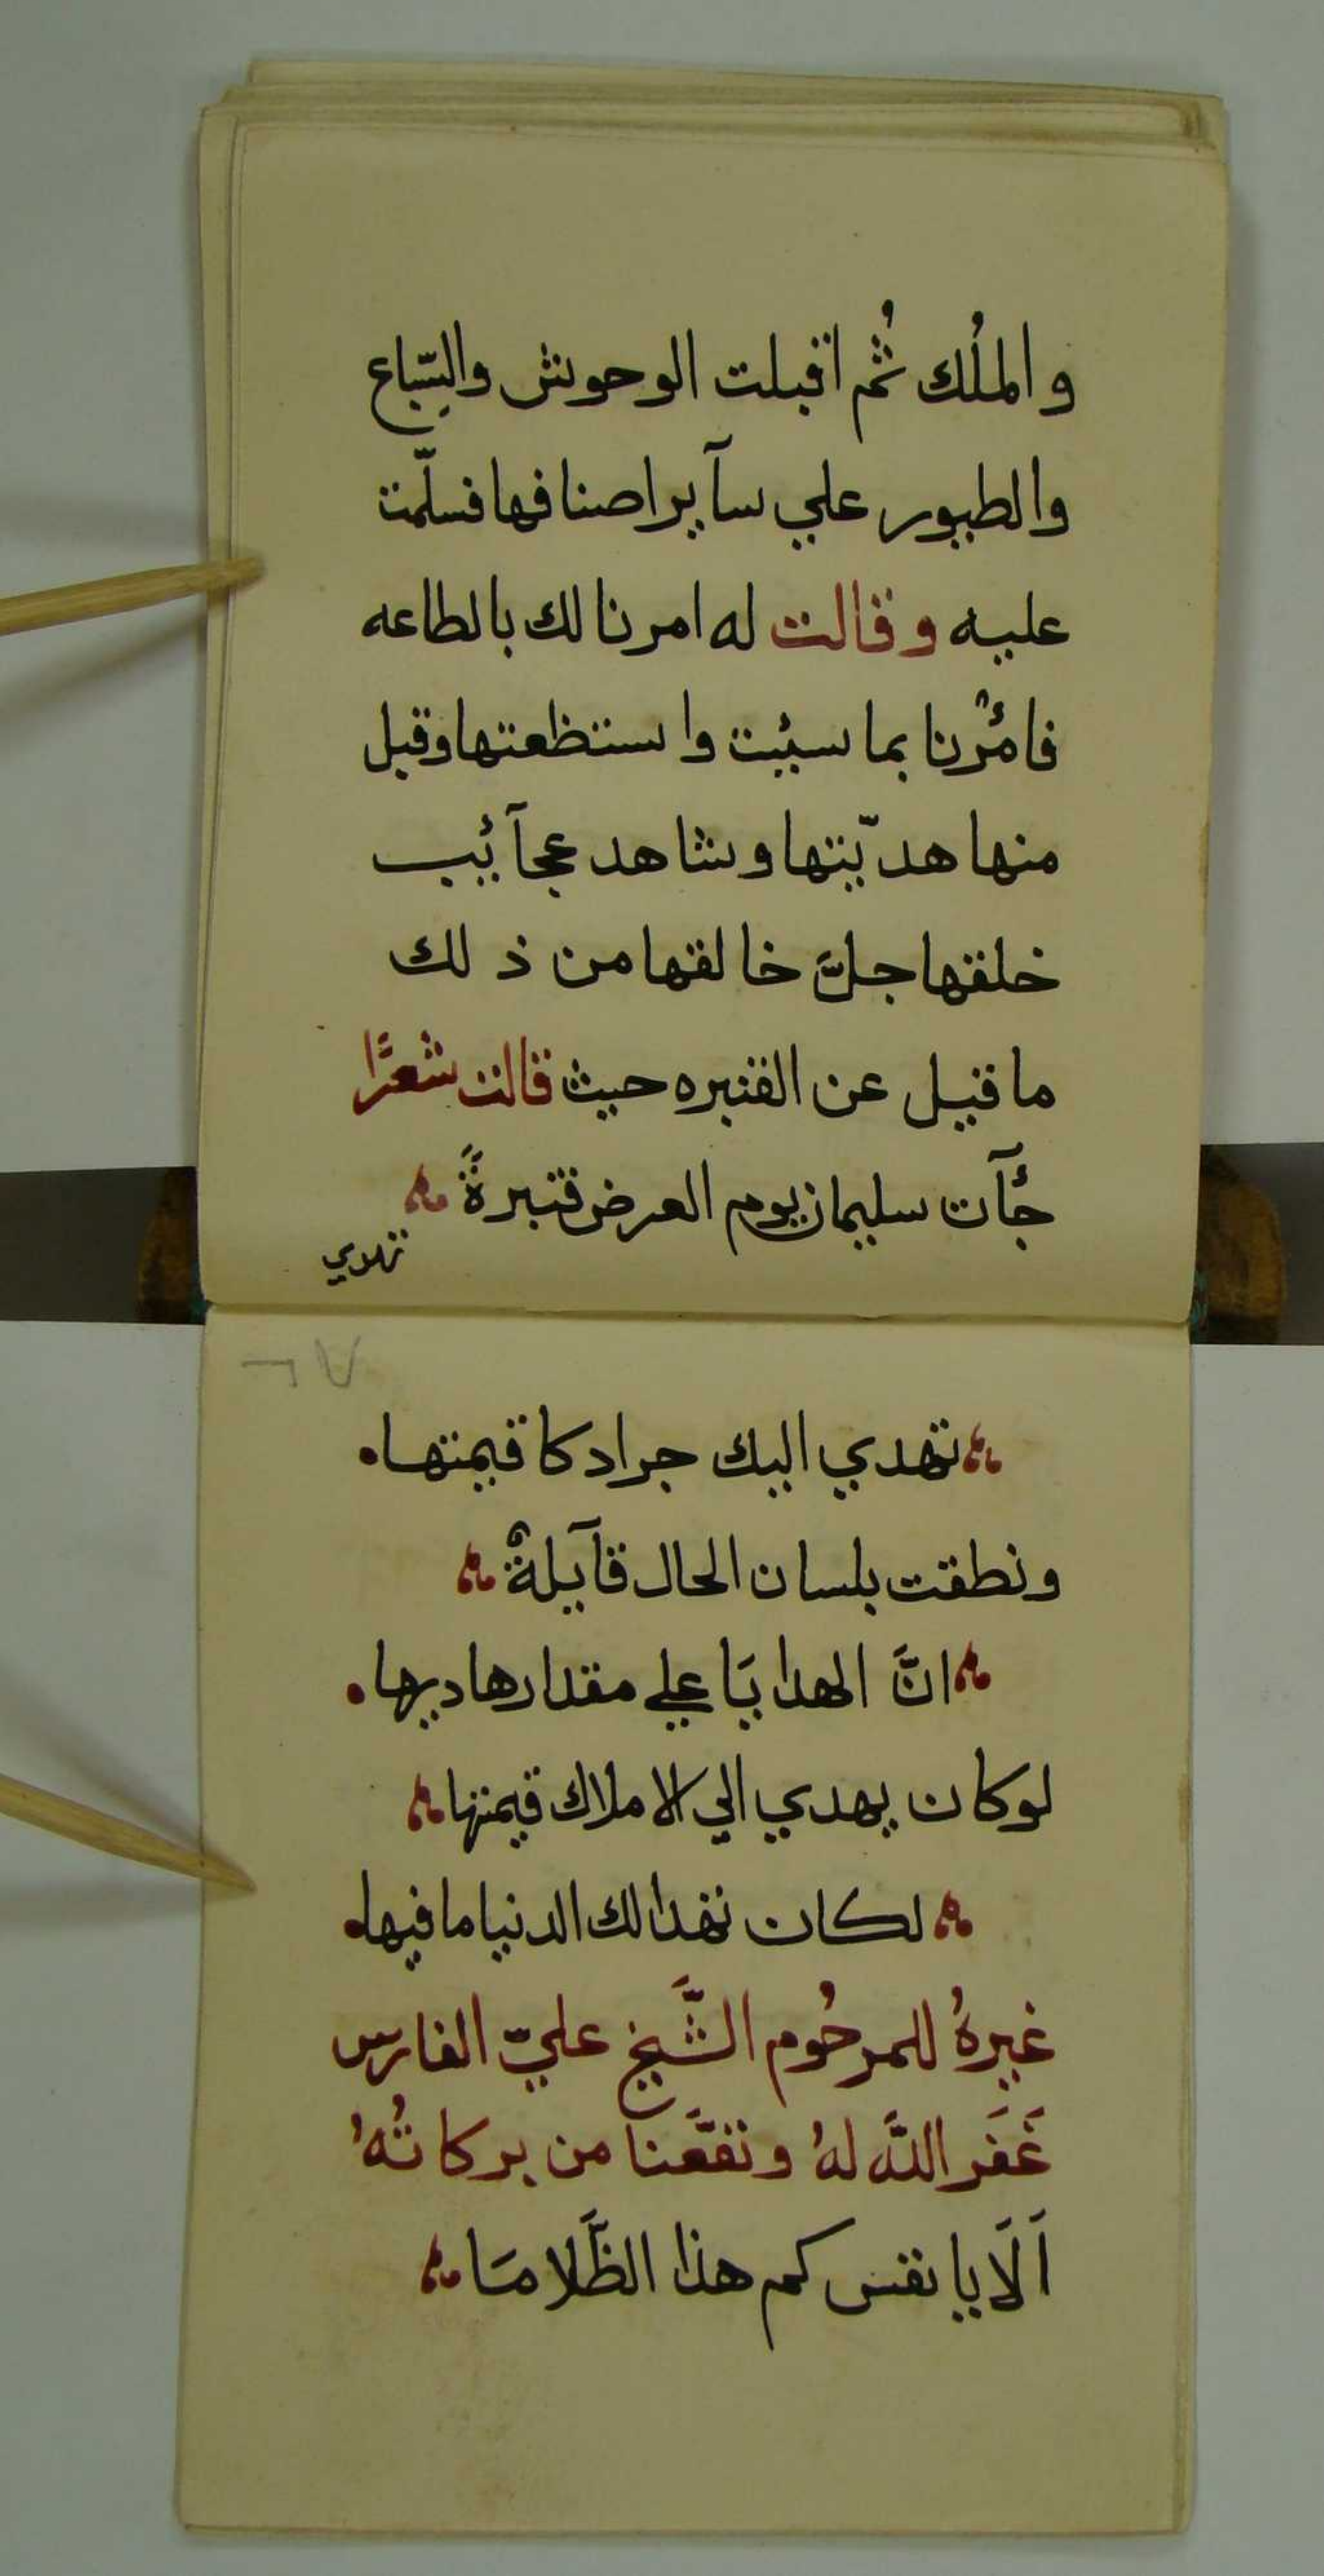 والملُك ثُم اقبلت الوحوش والسِّباع
والطيور علي سآير اصنافها فسلّمت
عليه وقالت له امرنا لك بالطاعه
فامُرْنا بما سئيت واستظعتها وقبل
منها هديّتها وشاهد عجآئيب
خلقتها جلَّ خالقها من ذلك
ما قيل عن القنبره حيث قالت شعرًا
جُآت سليمان يوم العرض قنبرةً
تهدي
تهدي اليك جراد كا قيمتها
ونطقت بلسان الحال قآيلةٌ
انَّ الهدايَا علي مقدارها ديها
لو كان يهدي الي الاملاك قيمتها
لكان نفدا لك الدنيا ما فيها
غيرهُ للمرحُوم الشَّيخ عليّ الفارس
غَفَر اللَّه لهُ ونفعَّنا من بركاتُهُ
اَلَا يا نفس كم هذا الظَّلامَا
٧٢